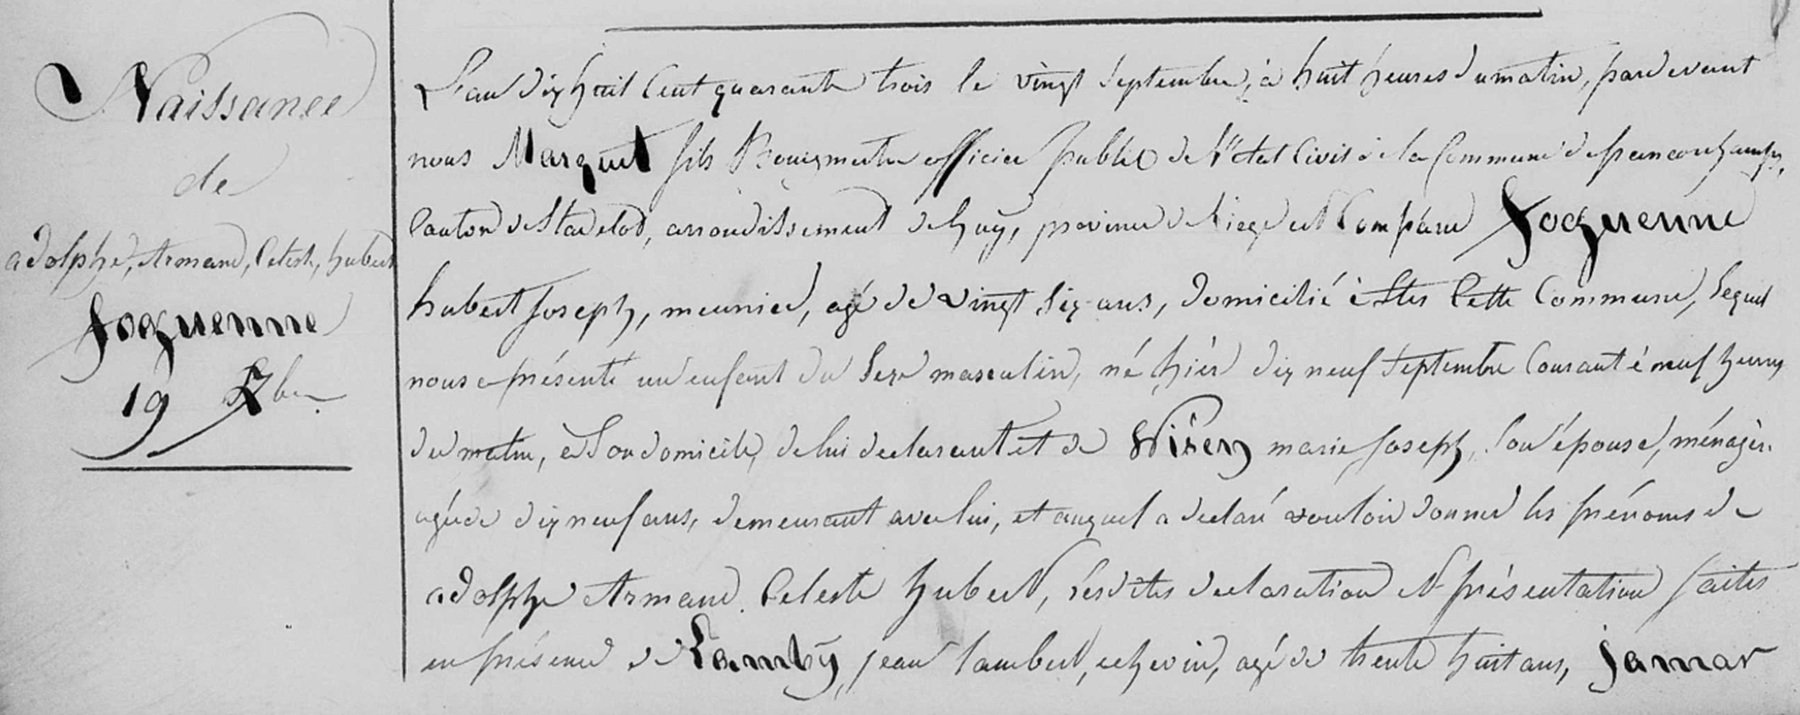 Naissance
de
adolphe, Armand, Celeste, hubert
foguenne
19 7bre
L'an dix huit Cent quarante trois le vingt Septembre, à huit heures du matin, pardevant
nous Marquet fils Bourgmestre officier public de l'état Civil de la Commune de francorchamps,
Canton de Stavelot, arrondissement de huy, province de Liege est Comparu foguenne
hubert Joseph, meunier, agé de vingt Six ans, domicilié à Ster Cette Commune, lequel
nous a présenté un enfant du Sexe masculin, né hier dix neuf Septembre Courant à neuf heures
du matin, à Son domicile, de lui declarant et de Wiben marie Joseph, Son épouse, ménagère
agée de dix neuf ans, demeurant avec lui, et auquel a declaré vouloir donner les prénoms de
adolphe Armand Celeste hubert, lesdites declaration et présentation faites
en présence de Lamby, jean lambert, echevin, agé de trente huit ans, Jamar